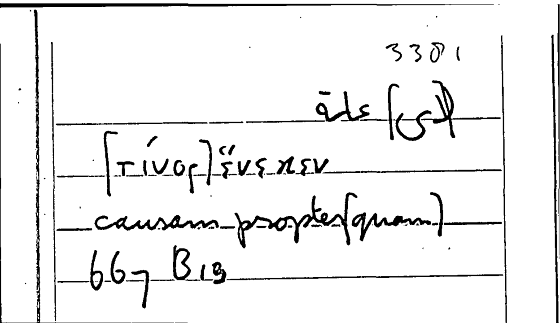 3381
علة
[τίνος] ἕνεκεν
causam propter[quam]
667 B 19